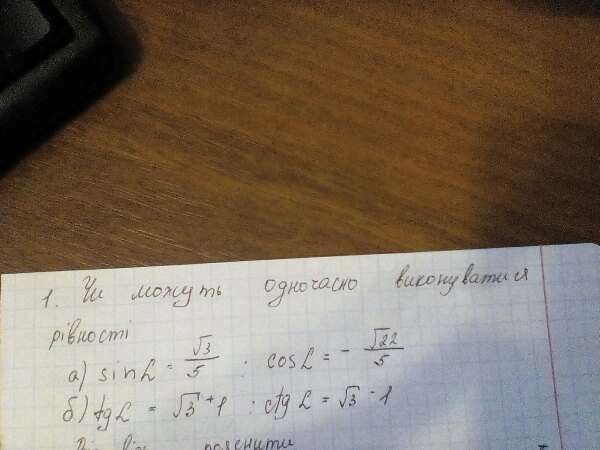 1. Чи можуть одночасно виконуватися
рівності
а) sinL = √3/5 ; cosL = - √22/5
б) tgL = √3 + 1 ; ctgL = √3 - 1
пояснити